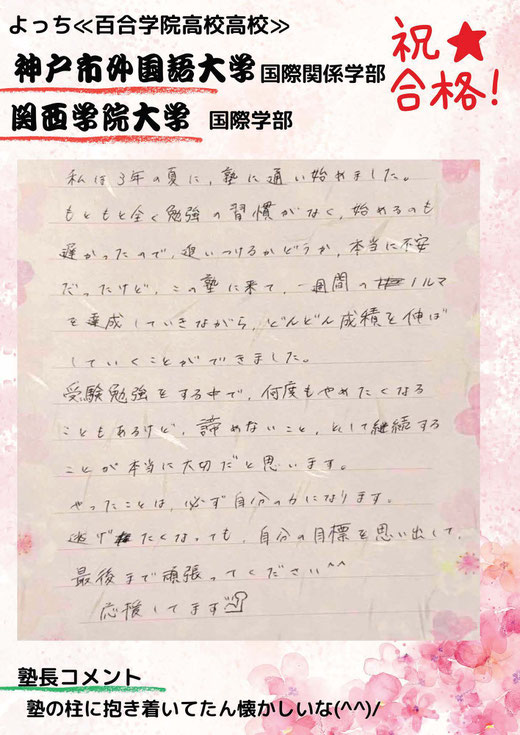 よっち≪百合学院高校高校≫
祝★
合格!
神戸市外国語大学 国際関係学部
関西学院大学 国際学部
私は3年の夏に、塾に通い始めました。
もともと全く勉強の習慣がなく、始めるのも
遅かったので、追いつけるかどうか、本当に不安
だったけど、この塾に来て、一週間のノルマ
を達成していきながら、どんどん成績を伸ば
していくことができました。
受験勉強をする中で、何度もやめたくなる
こともあるけど、諦めないこと、そして継続する
ことが本当に大切だと思います。
やったことは、必ず自分の力になります。
逃げたくなっても、自分の目標を思い出して、
最後まで頑張ってください^^
応援してます
塾長コメント
塾の柱に抱き着いてたん懐かしいな(^^)/